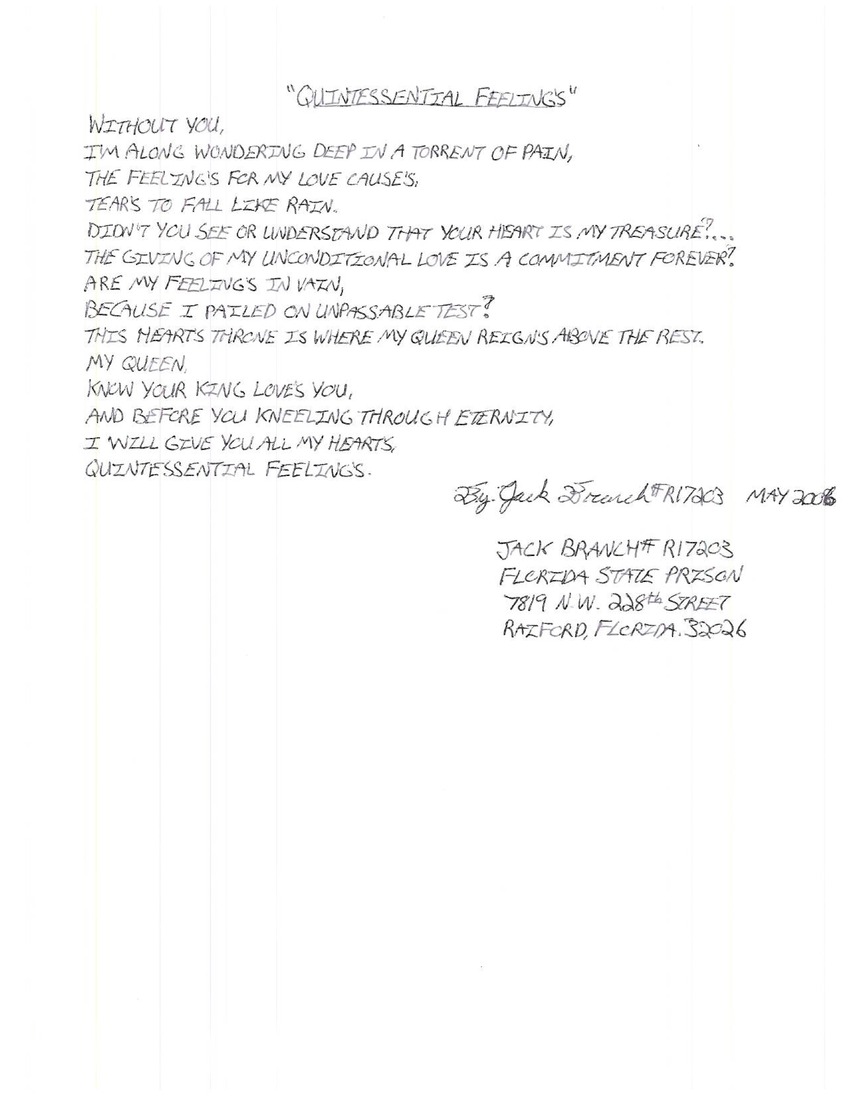 "QUINTESSENTIAL FEELING'S"
WITHOUT YOU,
I'M ALONG WONDERING DEEP IN A TORRENT OF PAIN,
THE FEELING'S FOR MY LOVE CAUSE'S,
TEAR'S TO FALL LIKE RAIN.
DIDN'T YOU SEE OR UNDERSTAND THAT YOUR HEART IS MY TREASURE?...
THE GIVING OF MY UNCONDITIONAL LOVE IS A COMMITMENT FOREVER?
ARE MY FEELING'S IN VAIN,
BECAUSE I FAILED ON UNPASSABLE TEST?
THIS HEARTS THRONE IS WHERE MY QUEEN REIGN'S ABOVE THE REST.
MY QUEEN,
KNOW YOUR KING LOVE'S YOU,
AND BEFORE YOU KNEELING THROUGH ETERNITY,
I WILL GIVE YOU ALL MY HEARTS,
QUINTESSENTIAL FEELING'S.
By: Jack Branch # R17203 MAY 2006
JACK BRANCH # R17203
FLORIDA STATE PRISON
7819 N.W. 228th STREET
RAIFORD, FLORIDA. 32026